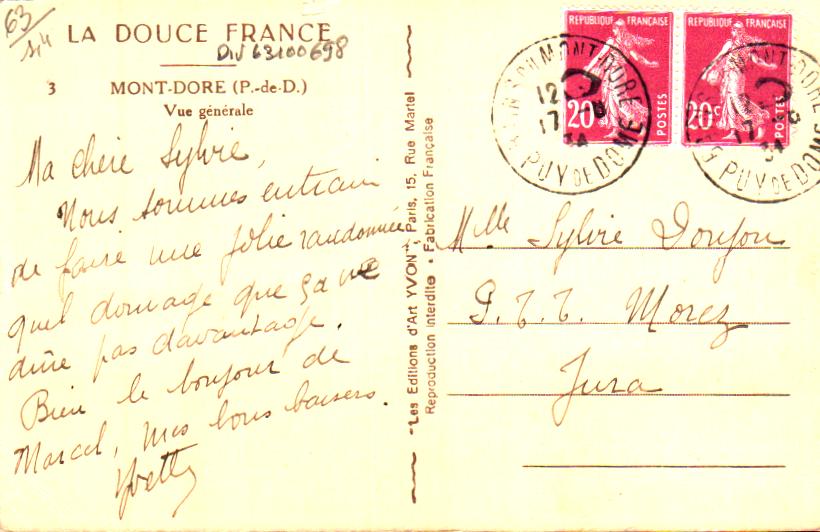 63
LA DOUCE FRANCE
Div 63100698
3 MONT-DORE (P.-de-D.)
Vue générale
Ma chère Sylvie,
Nous sommes entrain
de faire une jolie randonnée
quel domage que ça ne
dure pas davantage.
Bien le bonjour de
Marcel, mes bons baisers.
Yvette
"Les Editions d'Art YVON", Paris, 15, Rue Martel
Reproduction Interdite • Fabrication Française
REPUBLIQUE FRANÇAISE
20c
POSTES
REPUBLIQUE FRANÇAISE
20c
POSTES
MONT DORE
12
17 - 8
34
PUY DE DOME
MONT DORE
17 - 8
34
PUY DE DOME
Mlle Sylvie Doujon
P.T.T. Morez
Jura